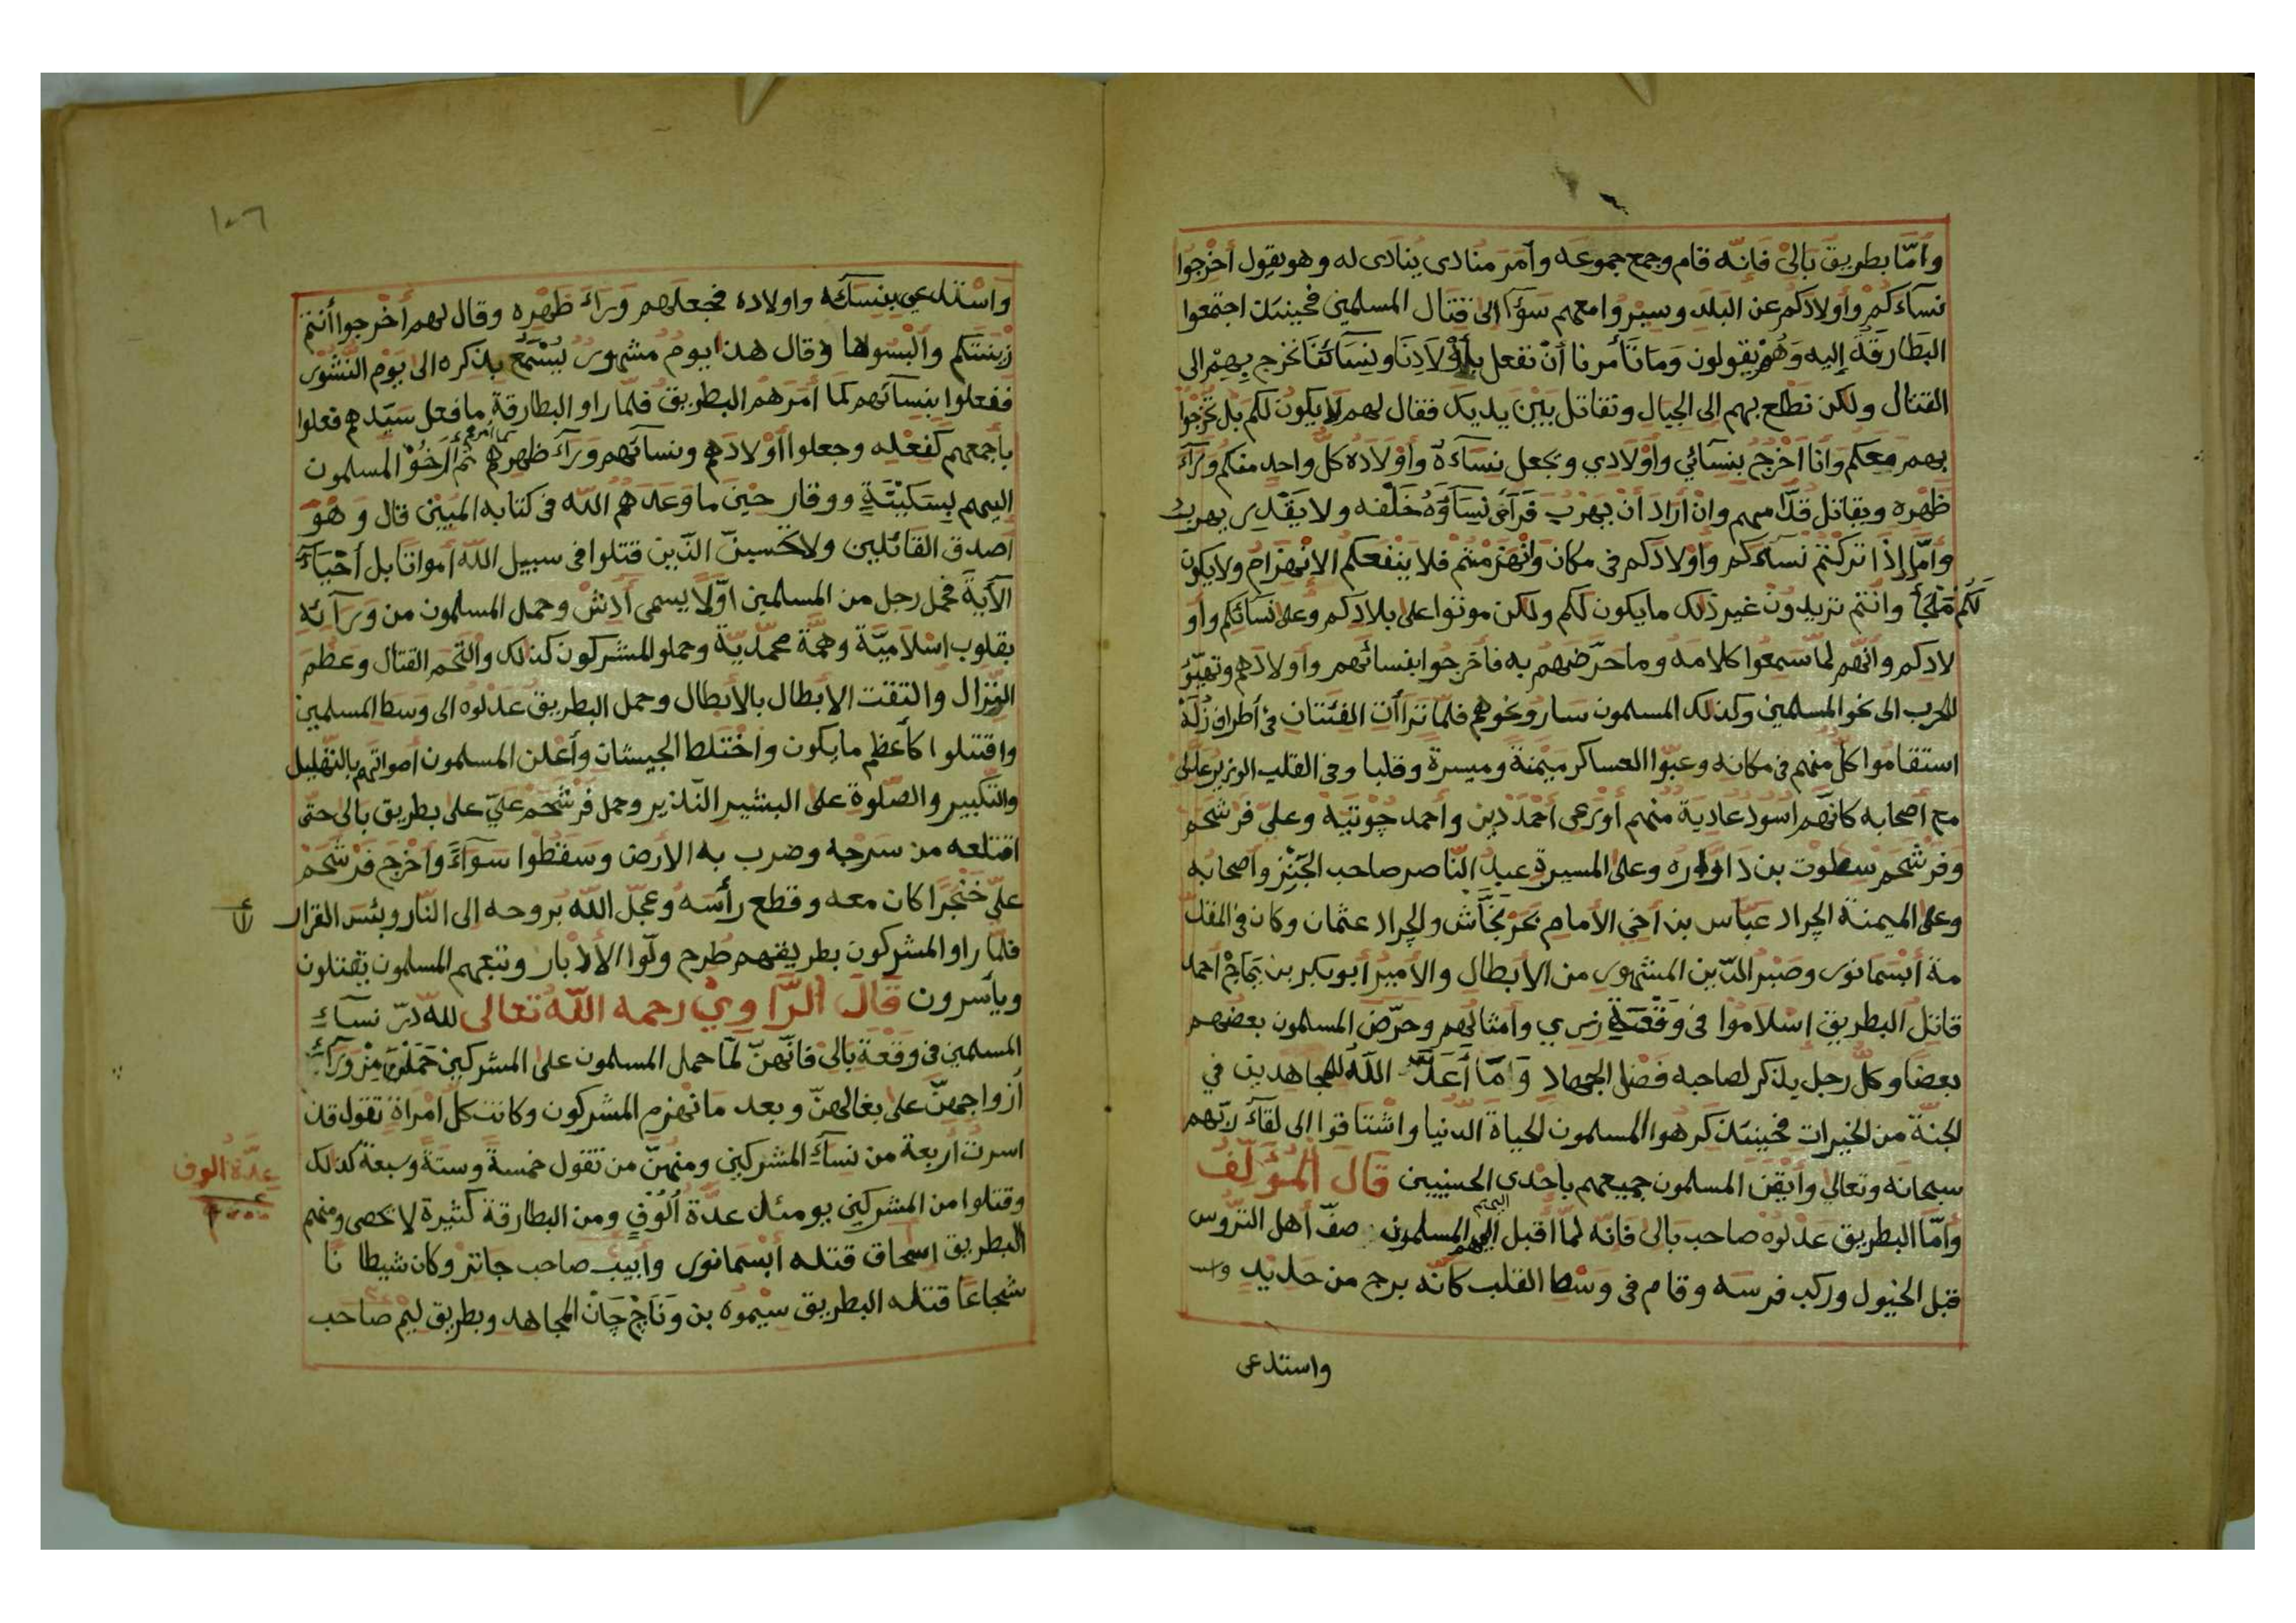 وأمّا بطريق بَالِيْ فَإنّه قام وجمع جموعه وأمَر منادى يُنادى له وهو يقول أخْرِجُوا
نسآءكمْ وأولادكم عن البلد وسيْروا معهم سَوَآءً الى قِتَال المسلمين فحينئذ اجتمعوا
البَطَارقَةُ إليه وَهُمْ يقولون وَمَا تَأمرنا أنْ نفعل بِأوْلَادِنَا ونِسَائنَا نخرج بِهِمْ الى
القتال ولكن نطْلع بهم الى الجبال ونقاتل بَيْنَ يديك فقال لهم لا يكُونُ لكم بل تخْرجُوْا
بهم مَعكم وَأنا أخْرُجُ بِنسَآئي وأوْلَادي ويجعل نسَاءَهُ وأوْلَادَهُ كلّ واحد منكم وَرَآءَ
ظهْره ويقاتل قدّامهم وانْ أرَادَ أنْ يَهْرُبَ فَرَأى نِسَآؤهُ خَلْفه ولا يَقْدِر يهرب
وأمّا إذَا تَركْتُمْ نسآءكم وأوْلادَكم فى مكان وَانْهَزَمْتُمْ فلا يَنْفعكم الانْهِزَامُ ولا يكون
لَكُمْ مَلْجَأ وانْتُم تريدُونَ غير ذلك ما يكون لكم ولكن موتوا على بلادكم وعلى نسَائكم وأو
لادكم وانّهم لمّا سَمِعُوا كلامَهُ وما حَرّضَهُمْ به فأخرجوا بنسائهم وأولادَهم وتهيّؤ
للحرب الى نحو المسلمين وكذلك المسلمون سارو نحوهم فلمّا تَرَاأتِ الفئتان فى أطراف زلَة
استقامُوا كلّ منهم فى مكانه وعبّوا العساكر مَيْمَنَة وميسرة وقلبا وفى القلب الوزير عَدْلِى
مع أصحابه كانّهم اسُود عَادِيَة منهم أوْرَعى أحْمَدْ دِيْن وأحمد جُوْتيَة وعلىّ فرْشَحَم
وفرْشَحَم سطوت بن دَاوارَه وعلى المَيسرة عبدُ النّاصر صاحب الجَنِز وأصحابه
وعلى الميمنة الجراد عبّاس بن أخى الأمام نحَرْ بُحَّاش والجراد عثمان وكان فى المقدّ
مة أبْسَمَا نورى وصَبْرُ الدّين المشهور من الأبطال والأميرُ أبو بكر بن يَمَاجْ أحمد
قاتل البطريق إسْلامُوا فى وَقْعَة زرى وأمثالهم وحَرّضَ المسلمون بعضُهم
بعضًا وكلّ رجل يذكر لصاحبه فَضْل الجهاد وَمَا أعَدَّ اللّهُ للمجاهدين في
الجنّة من الخيرات فحينئذ كرهوا المسلمون الحياة الدنيا واشْتاقوا الى لقآءَ ربّهم
سبحانَه وتعالى وأيْقَنَ المسلمون جميعهم باحْدى الحسنيين قالَ المُؤلّفُ
وأمّا البطريق عَدْلوهْ صاحب بَالى فَانّه لمّا أقبل اليهم المسلمون صفّ أهل التُّروس
قبل الخيول وركب فرسَه وقام فى وسْط القلب كانّه برج من حديد واسـ
واستدعى
١٠٦
واسْتدعى بنسآئه واولاده فجعلهم وَرَآءَ ظَهْرِه وقال لهم أخْرجوا أنتم
زيْنَتَكم وألْبسُوها وَقال هذا يومٌ مشهور يُسْمَعُ بذكره الى يَوْم النُّشُوْر
ففعلوا بنسآئهم كما أمَرَهُم البطريق فلمّا راو البطارقة ما فعل سَيّدهم فعلوا
بأجمعهم كَفِعْلِه وجعلوا أوْلادَهم ونسآئهم وَرَآءَ ظهرهم ثم أرخَوْا المسلمون
اليهم بِسَكِيْنَةٍ ووقار حِيْنَ ما وَعَدَهُم اللّه فى كتابه المُبِيْن قال وَهُوَ
أصدق القائلين ولا تحْسبنّ الذين قتلوا فى سبيل اللّه أمواتا بل أحْيَآءٌ
الآيةَ فحمل رجل من المسلمين اوّلًا يسمى أدِشْ وحمل المسلمون من وَرَآئه
بقلوب اسْلاميّة وهمَّة محمّديّة وحملو المشركون كذلك وَالْتَحَم القتال وعَظُم
النِّزال والتقت الأبطال بالأبطال وحمل البطريق عَدْلوه الى وَسَط المسلمين
واقتتلوا كأعظم ما يكون واخْتلط الجيشان وأعْلن المسلمون أصواتهم بالتّهليل
والتّكبير والصّلوة على البشير النّذير وحمل فرْشَحَمْ عَليّ على بطريق بالى حتّى
اقتلعه من سَرْجه وضرب به الأرض وسَقطُوا سَوَآءً وأخْرَجَ فَرْشَحَمْ
عليّ خَنْجَرًا كان معه وقطع رأسَه وعجّل اللّه بروحه الى النّار وبئسَ القرار
فلمّا راو المشركون بطريقهم طُرح ولّوا الأدْبار وتبعهم المسلمون يقتلون
ويأسرون قَالَ الرَّاوِيْ رحمه اللّه تعالى للّه درّ نسآءِ
المسلمين فى وَقْعَة بَالِى فَانّهنّ لَمّا حمل المسلمون على المشركين حَمَلْنَ مِنْ وَرَآءِ
أزواجهنّ على بغالهنّ وبعد ما نهزم المشركون وكانت كل امْرَأة تقول قد
اسرْتُ أربعة من نسآءِ المشركين ومنهنّ من تقول خمسةً وستةً وسبعة كذلك
وقتلوا من المشركين يومئذ عدَّة ألُوْفٍ ومن البطارقة كثيرة لا تحصى ومنهم
البطريق اسحاق قتله أبْسَمَا نورى وأبيبْ صاحب جانز وكان شيطا نًا
شُجاعًا قتله البطريق سِيْمُوه بن وَنَاجْ جَانْ المجاهد وبطريق ليْم صَاحب
عدّة الوف